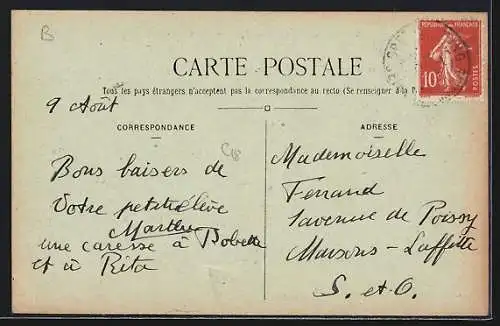 B
CARTE POSTALE
Tous les pays étrangers n'acceptent pas la correspondance au recto (Se renseigner à la P
9 Août
CORRESPONDANCE
Bons baisers de
votre petite élève
Marthe
une caresse à Bobette
et à Rita
ADRESSE
Mademoiselle
Ferrand
1 avenue de Poissy
Maisons-Laffitte
S. et O.
REPUBLIQUE FRANÇAISE
10
POSTES